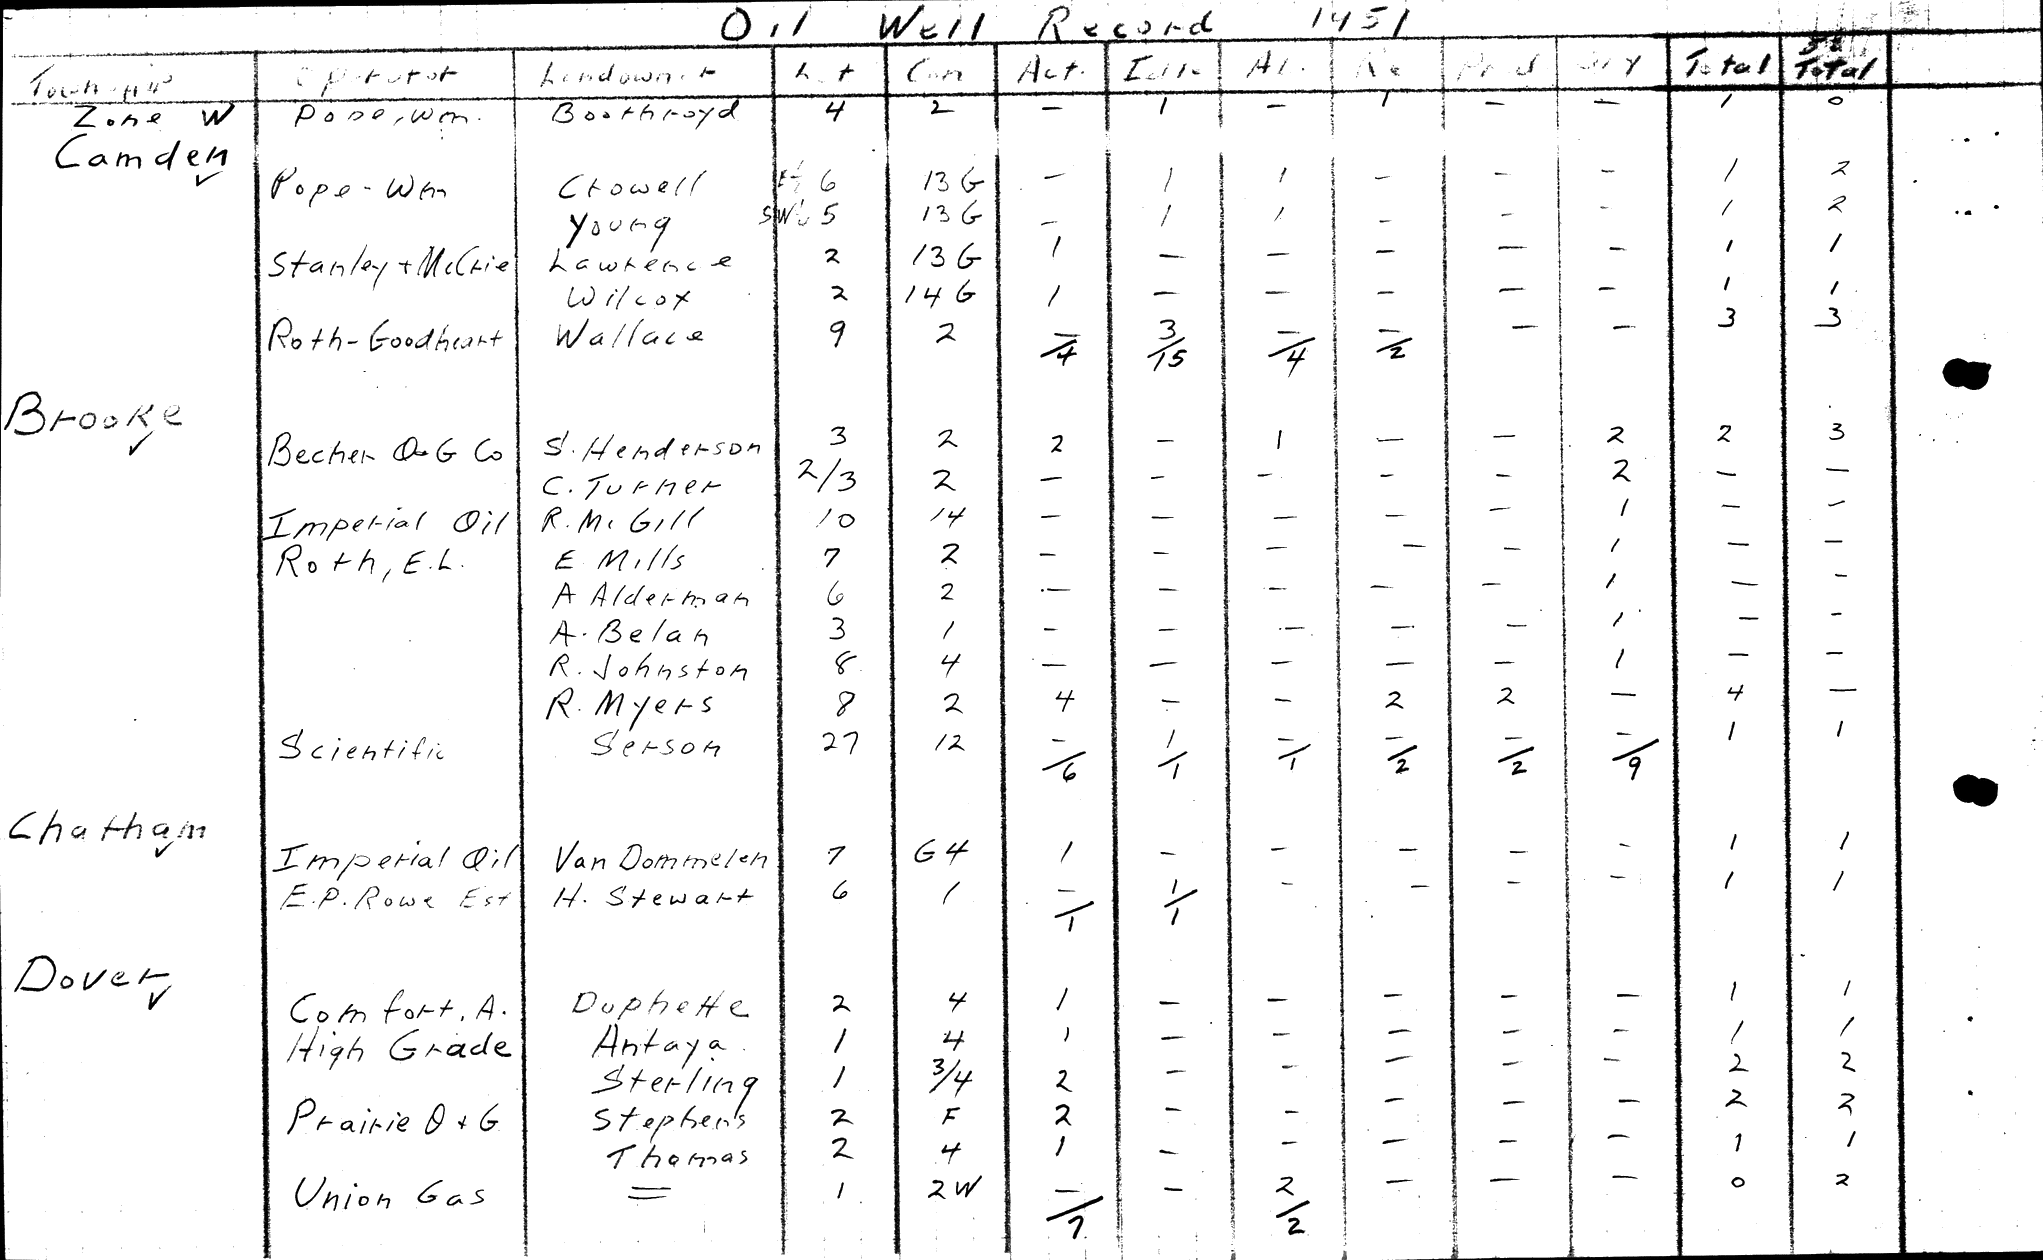 Oil Well Record 1951
Township Operator Landowner Lot Con Act. Idle Ab. Re Prod Dry Total 50 Total
Zone W Pope, Wm. Boothroyd 4 2 — 1 — 1 — — 1 0
Camden ✓
Pope - Wm Crowell 6 13 G — 1 1 — — — 1 2
Young 5 13 G — 1 1 — — — 1 2
Stanley + McCrie Lawrence 2 13 G 1 — — — — — 1 1
Wilcox 2 14 G 1 — — — — — 1 1
Roth-Goodheart Wallace 9 2 — 3 — — — — 3 3
/4 /15 /4 /2
Brooke ✓
Becher O+G Co S. Henderson 3 2 2 — 1 — — 2 2 3
C. Turner 2/3 2 — — — — — 2 — —
Imperial Oil R. McGill 10 14 — — — — — 1 — —
Roth, E.L. E Mills 7 2 — — — — — 1 — —
A Alderman 6 2 — — — — — 1 — —
A. Belan 3 1 — — — — — 1 — —
R. Johnston 8 4 — — — — — 1 — —
R. Myers 8 2 4 — — 2 2 — 4 —
Scientific Serson 27 12 — 1 — — — — 1 1
/6 /1 /1 /2 /2 /9
Chatham ✓
Imperial Oil Van Dommelen 7 G4 1 — — — — — 1 1
E.P. Rowe Est H. Stewart 6 1 — 1 — — — — 1 1
/1 /1
Dover ✓
Comfort, A. Duphette 2 4 1 — — — — — 1 1
High Grade Antaya 1 4 1 — — — — — 1 1
Sterling 1 3/4 2 — — — — — 2 2
Prairie O + G Stephens 2 F 2 — — — — — 2 2
Thomas 2 4 1 — — — — — 1 1
Union Gas = 1 2W — — 2 — — — 0 2
/7 /2